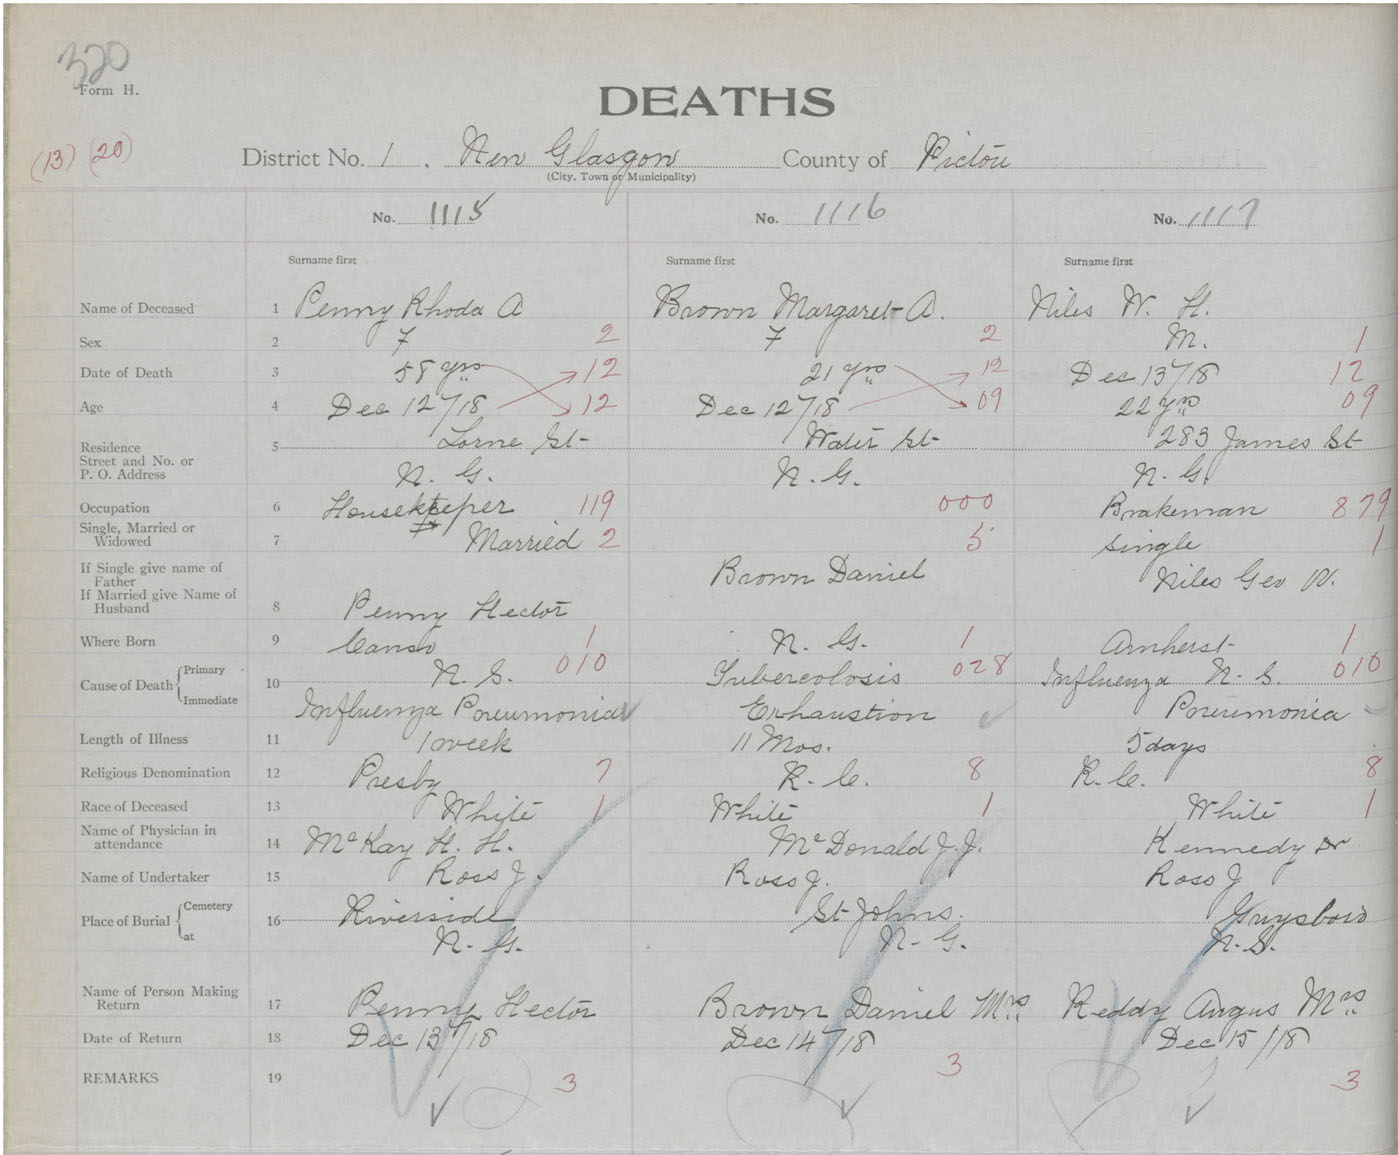 320
Form H.
DEATHS
(13) (20)
District No. 1. New Glasgow County of Pictou
(City, Town or Municipality)
No. 1115 No. 1116 No. 1117
Surname first Surname first Surname first
Name of Deceased 1 Penny Rhoda A Brown Margaret A. Niles W. H.
Sex 2 F 2 F 2 M. 1
Date of Death 3 58 yrs 12 21 yrs 12 Dec 13/18 12
Age 4 Dec 12/18 12 Dec 12/18 09 22 yrs 09
Residence 5 Lorne St Water St 283 James St
Street and No. or
P. O. Address N. G. N. G. N. G.
Occupation 6 Housekeeper 119 000 Brakeman 879
Single, Married or
Widowed 7 Married 2 5 Single 1
If Single give name of
Father Brown Daniel Niles Geo W.
If Married give Name of
Husband 8 Penny Hector
Where Born 9 Canso 1 N. G. 1 Amherst 1
Cause of Death Primary 10 N. S. 010 Tubercolosis 028 Influenza N. S. 010
Immediate Influenza Pneumonia Exhaustion Pneumonia
Length of Illness 11 1 week 11 Mos. 5 days
Religious Denomination 12 Presby 7 R. C. 8 R. C. 8
Race of Deceased 13 White 1 White 1 White 1
Name of Physician in
attendance 14 McKay H. H. McDonald J. J. Kennedy Dr
Name of Undertaker 15 Ross J. Ross J. Ross J
Place of Burial Cemetery 16 Riverside St Johns. Guysboro
at N. G. N-G. N.S.
Name of Person Making
Return 17 Penny Hector Brown Daniel Mrs Reddy Angus Mrs
Date of Return 18 Dec 13/18 Dec 14/18 Dec 15/18
REMARKS 19 3 3 3